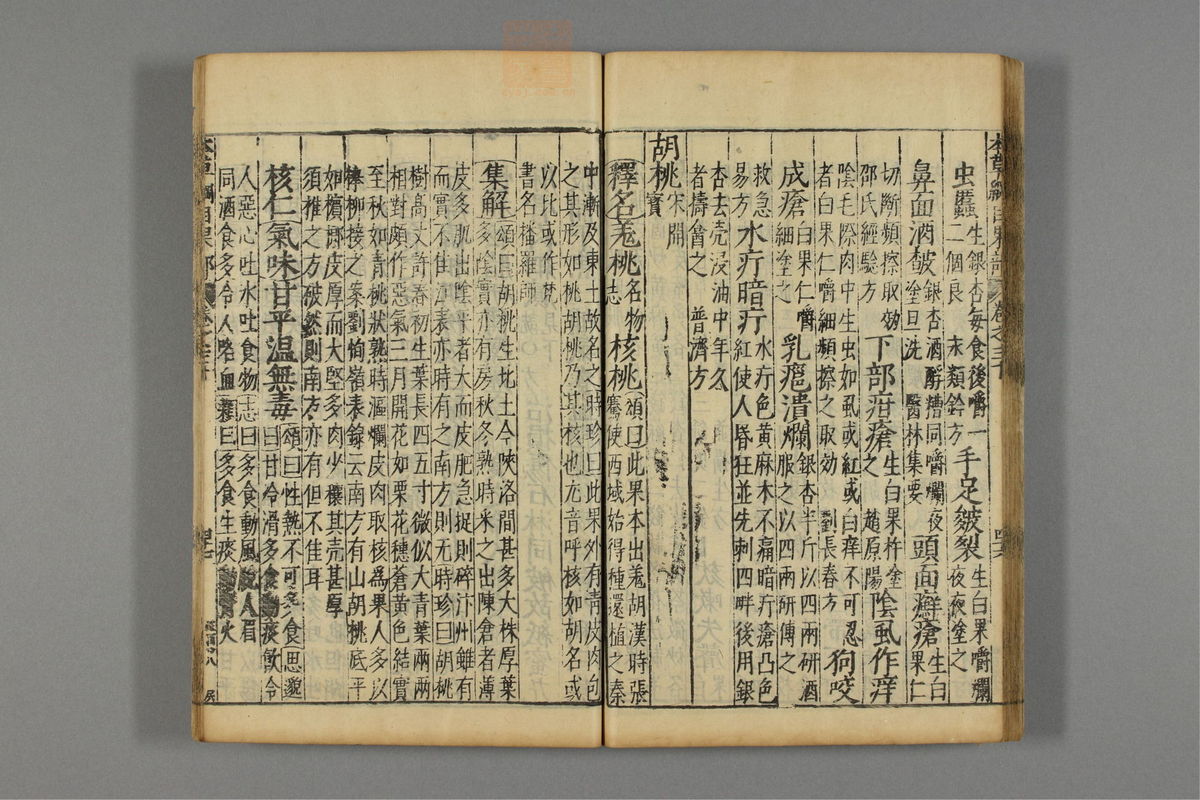 本草綱目果部 卷之三十
虫䘌 生銀杏每食後嚼一
二個良 永類鈐方
手足皴裂 生白果嚼爛
夜夜塗之
鼻面酒皶 銀杏酒酻糟同嚼爛夜
塗旦洗 醫林集要
頭面癬瘡 生白
果仁
切斷頻擦取効
邵氏經驗方
下部疳瘡 生白果杵塗
之 趙原陽
陰虱作痒
陰毛際肉中生虫如虱或紅或白痒不可忍
者白果仁嚼細頻擦之取効 劉長春方
狗咬
成瘡 白果仁嚼
細塗之
乳癰潰爛 銀杏半斤以四兩研酒
服之以四兩研傅之
救急
易方
水疔暗疔 水疔色黃麻木不痛暗疔瘡凸色
紅使人昏狂並先刺四畔後用銀
杏去壳浸油中年久
者擣盦之 普濟方
胡桃 宋開
寳
釋名 羌桃 名物
志
核桃 頌曰此果本出羌胡漢時張
騫使西域始得種還植之秦
中漸及東土故名之時珍曰此果外有青皮肉包
之其形如桃胡桃乃其核也羌音呼核如胡名或
以此或作梵
書名播羅師
集解 頌曰胡桃生北土今陝洛間甚多大株厚葉
多陰實亦有房秋冬熟時采之出陳倉者薄
皮多肌出陰平者大而皮脆急捉則碎汴州雖有
而實不佳江表亦時有之南方則无時珍曰胡桃
樹高丈許春初生葉長四五寸微似大青葉兩兩
相對頗作惡氣三月開花如栗花穗蒼黃色結實
至秋如青桃狀熟時漚爛皮肉取核為果人多以
欅柳接之案劉恂嶺表録云南方有山胡桃底平
如檳榔皮厚而大堅多肉少穰其壳甚厚
須椎之方破然則南方亦有但不佳耳
核仁氣味甘平温無毒 頌曰性熱不可多食思邈
曰甘冷滑多食動痰飲令
人惡心吐水吐食物志曰多食動風脫人眉
同酒食多令人咯血頴曰多食生痰火
本草綱目果部 卷之三十